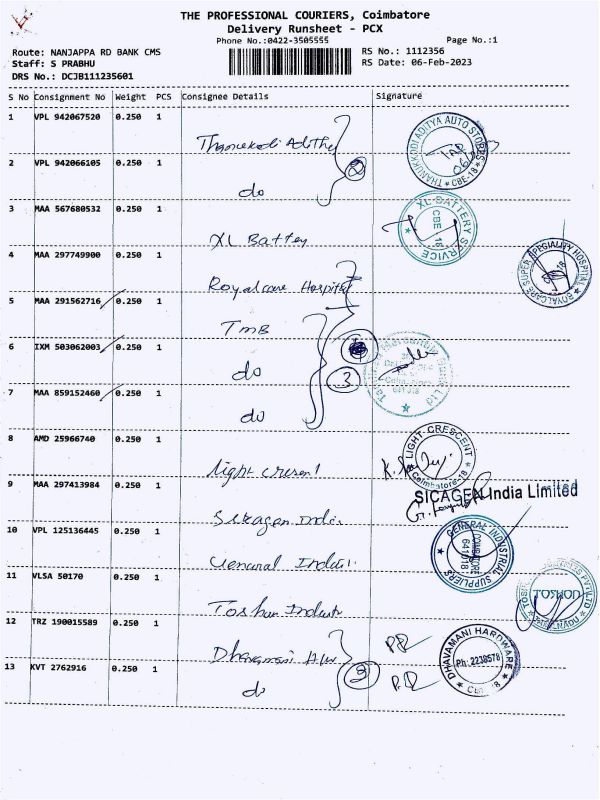 THE PROFESSIONAL COURIERS, Coimbatore
Delivery Runsheet - PCX
Phone No.:0422-3505555
Page No.:1
Route: NANJAPPA RD BANK CMS
RS No.: 1112356
Staff: S PRABHU
RS Date: 06-Feb-2023
DRS No.: DCJB111235601
S No Consignment No Weight PCS Consignee Details Signature
1 VPL 942067520 0.250 1
THANUKKODI ADITYA AUTO STORES
CBE-18
2 VPL 942066105 0.250 1
do
2
3 MAA 567680532 0.250 1
XL Battery
XL BATTERY SERVICE
CBE 18
4 MAA 297749900 0.250 1
Royalcare Hospital
ROYALCARE SUPER SPECIALITY HOSPITAL
5 MAA 291562716 0.250 1
TMB
6 IXM 503062003 0.250 1
do
3
7 MAA 859152460 0.250 1
do
8 AMD 25966740 0.250 1
light cresent
LIGHT-CRESCENT
Coimbatore-18
9 MAA 297413984 0.250 1
SICAGEN India Limited
10 VPL 125136445 0.250 1
GENERAL INDUSTRIAL SUPPLIERS
COIMBATORE
641018
11 VLSA 50170 0.250 1
12 TRZ 190015589 0.250 1
DHAVAMANI HARDWARE
Ph: 2230578
13 KVT 2762916 0.250 1
do
2